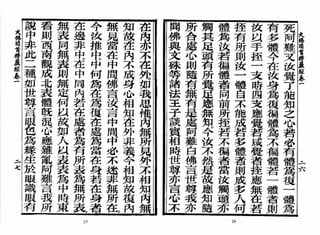 二六
死阿難又汝覺了能知之心若必有體為復一體為
有多體今在汝身為復徧體為不徧體若一體者則
汝以手挃一支時四支應覺若咸覺者挃應無在若
挃有所則汝一體自不能成若多體者則成多人何
體為汝若徧體者同前所挃若不徧者當汝觸頭亦
觸其足頭有所覺足應無知今汝不然是故應知隨
所合處心則隨有無有是處阿難白佛言世尊我亦
聞佛與文殊等諸法王子談實相時世尊亦言心不
在內亦不在外如我思惟內無所見外不相知內無
知故在內不成身心相知在外非義今相知故復內
無見當在中間佛言汝言中間中必不迷非無所在
今汝推中中何為在為復在處為當在身若在身者
在邊非中在中同內若在處者為有所表為無所表
無表同無表則無定何以故如人以表表為中時東
看則西南觀成北表體既混心應雜亂阿難言我所
說中非此二種如世尊言眼色為緣生於眼識眼有
大佛頂首楞嚴經卷一
二七